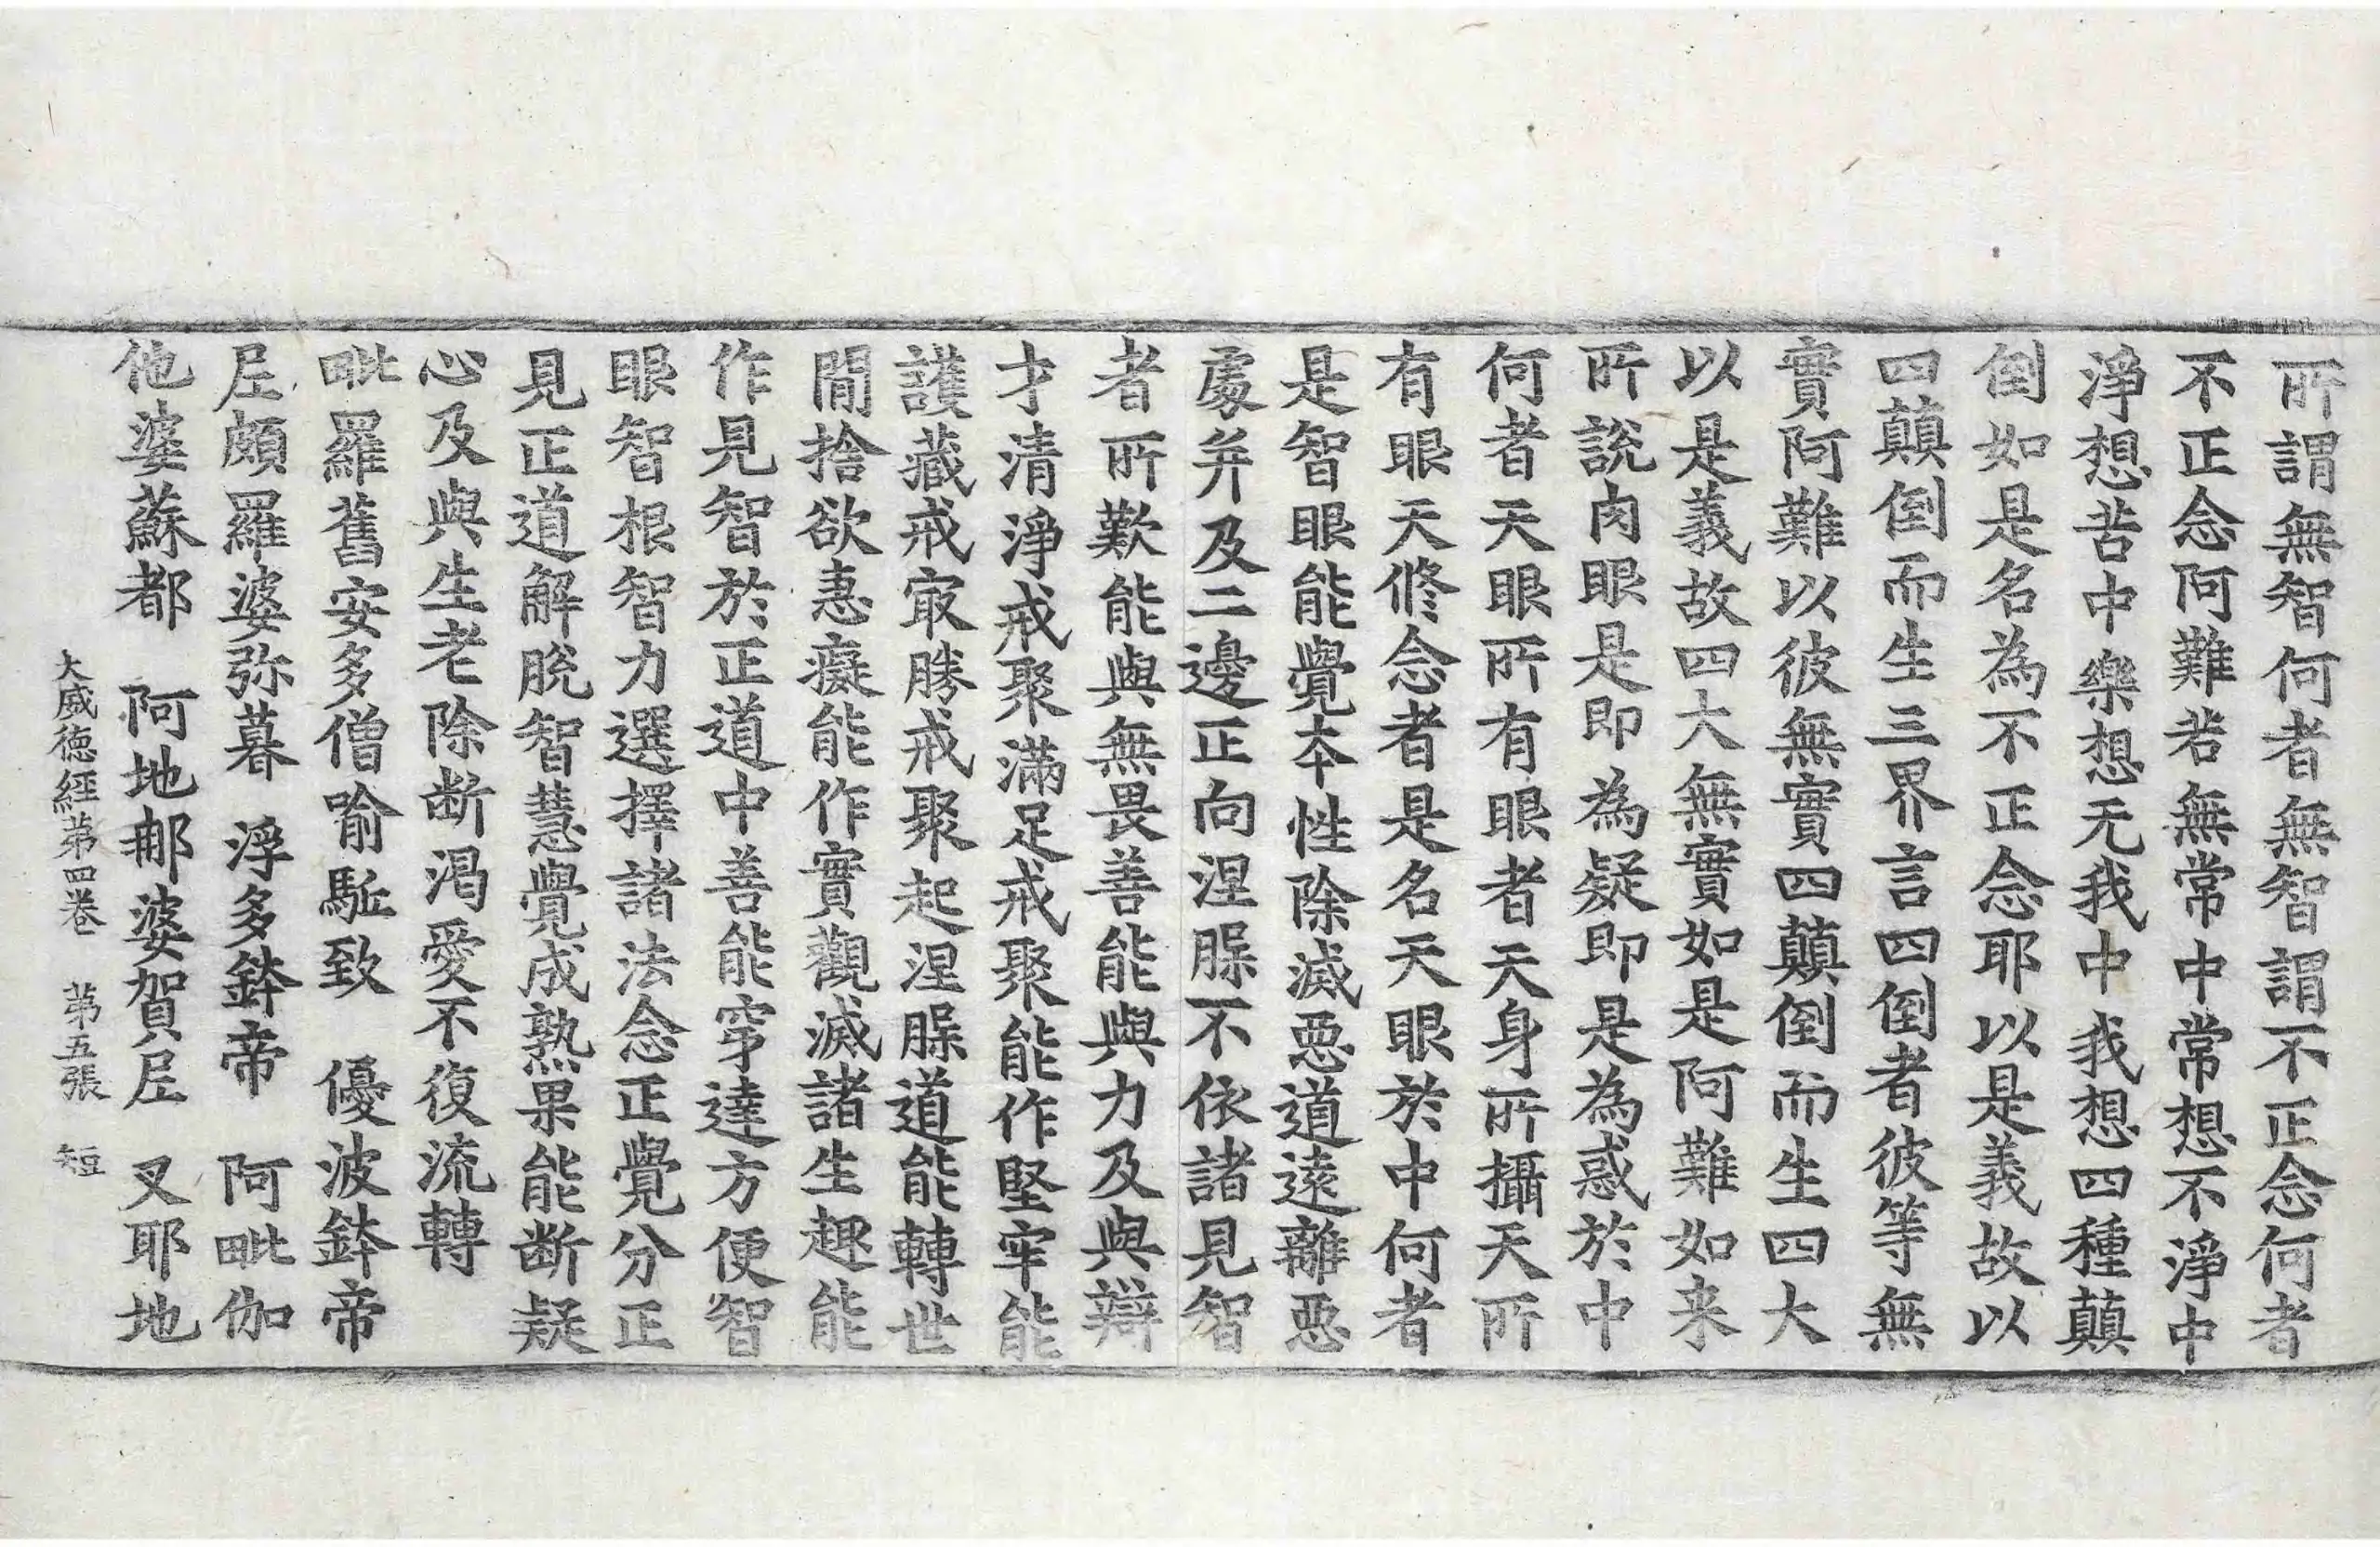 所謂無智何者無智謂不正念何者
不正念阿難若無常中常想不淨中
淨想苦中樂想无我中我想四種顛
倒如是名為不正念耶以是義故以
四顛倒而生三界言四倒者彼等無
實阿難以彼無實四顛倒而生四大
以是義故四大無實如是阿難如来
所說肉眼是即為疑即是為惑於中
何者天眼所有眼者天身所攝天所
有眼天修念者是名天眼於中何者
是智眼能覺本性除滅惡道遠離惡
處并及二邊正向涅槃不依諸見智
者所歎能與無畏善能與力及與辯
才清淨戒聚滿足戒聚能作堅牢能
護藏戒㝡勝戒聚起涅槃道能轉世
間捨欲恚癡能作實觀滅諸生趣能
作見智於正道中善能穿達方便智
眼智根智力選擇諸法念正覺分正
見正道解脫智慧覺成熟果能断疑
心及與生老除断渴愛不復流轉
毗羅舊安多僧喻駈致　優波鉢帝
𡰱頗羅婆弥暮　浮多鉢帝　阿毗伽
他婆蘇都　阿地郍婆賀𡰱　叉耶地
大威徳經第四卷　第五張　短